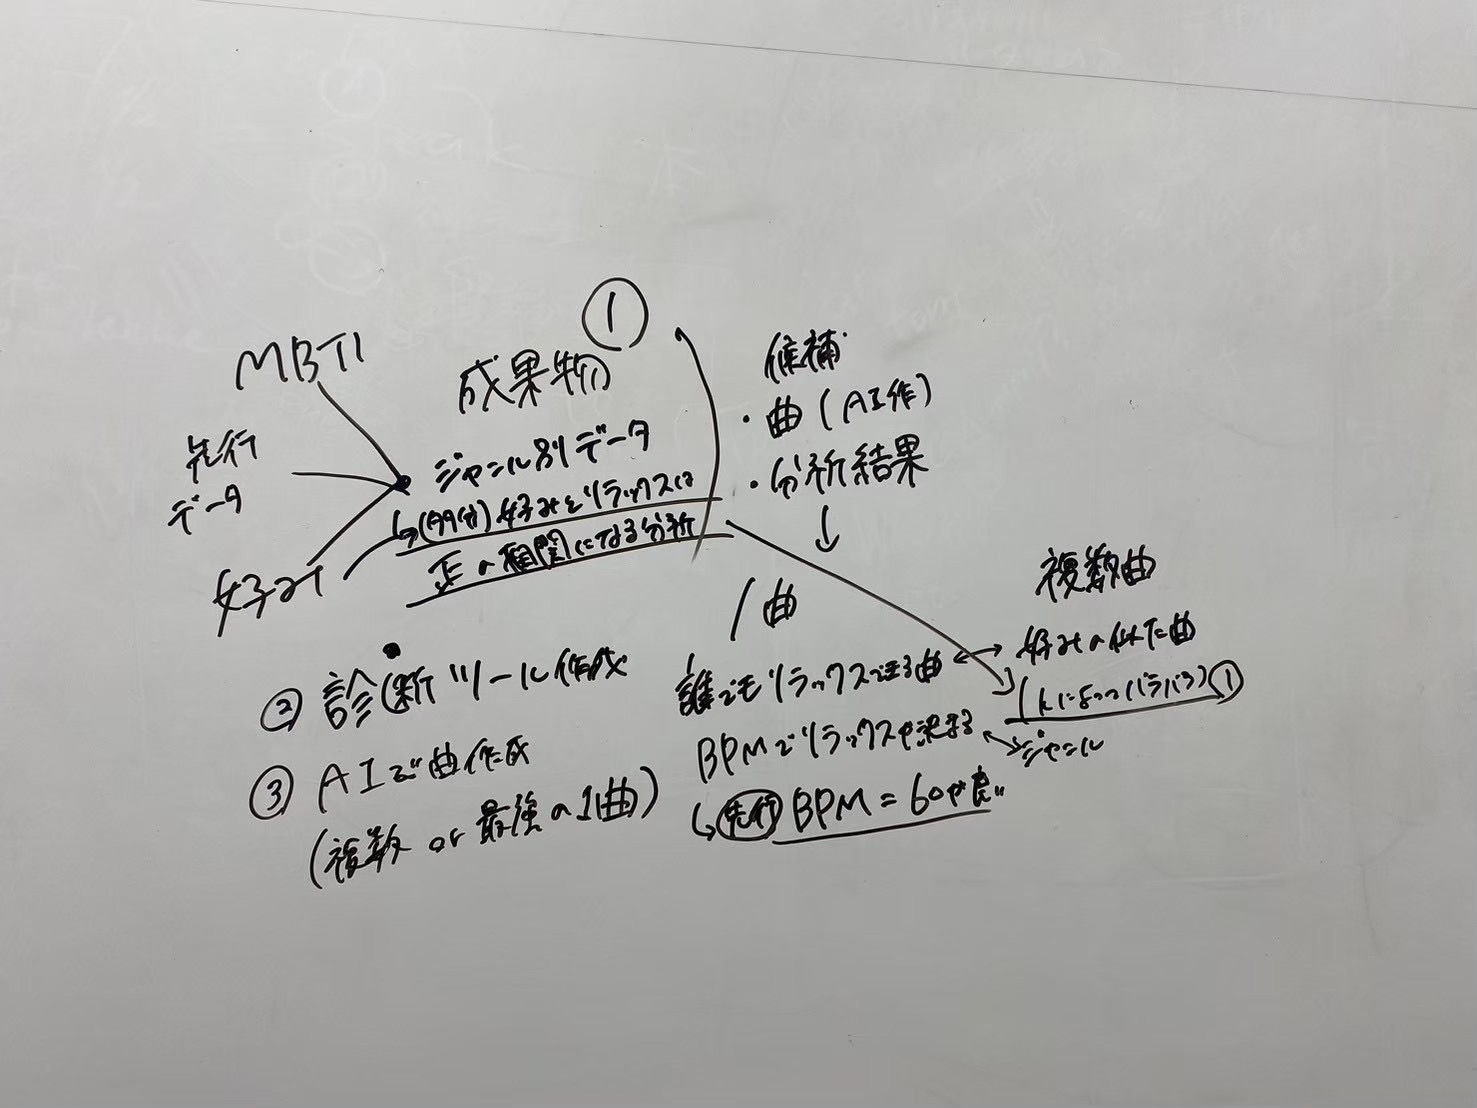 ①
MBTI
成果物
先行
データ
好み
ジャンル別データ
↳ 好みとリラックスは
正の相関になる分析
② 診断ツール作成
③ AIで曲作成
(複数 or 最強の1曲)
候補
・曲(AI作)
・分析結果
↓
1曲
誰でもリラックスできる曲
BPMでリラックスが決まる
↳ 先行 BPM=60が良い
複数曲
好みの似た曲
(人によってバラバラ) ①
ジャンル